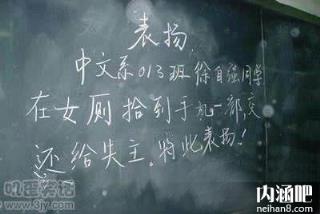 表扬
中文系013班徐自强同学
在女厕拾到手机一部交
还给失主.特此表扬!
www.3jy.com
内涵吧
neihan8.com